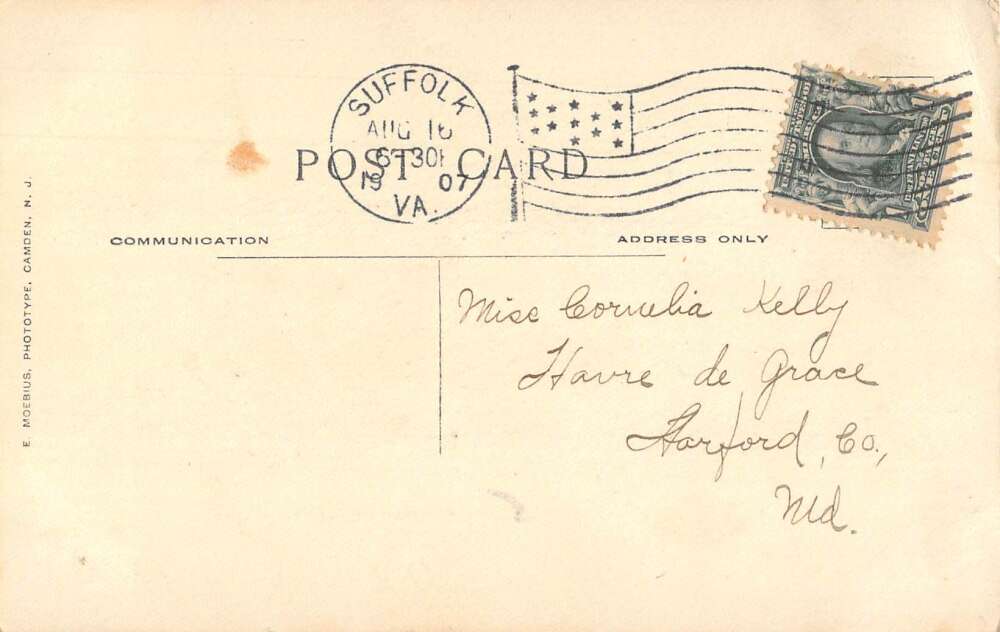 SUFFOLK
AUG 16
6 30P
19 07
VA.
POST CARD
COMMUNICATION
ADDRESS ONLY
E. MOEBIUS, PHOTOTYPE, CAMDEN, N. J.
Miss Cornelia Kelly
Havre de Grace
Harford, Co.,
Md.